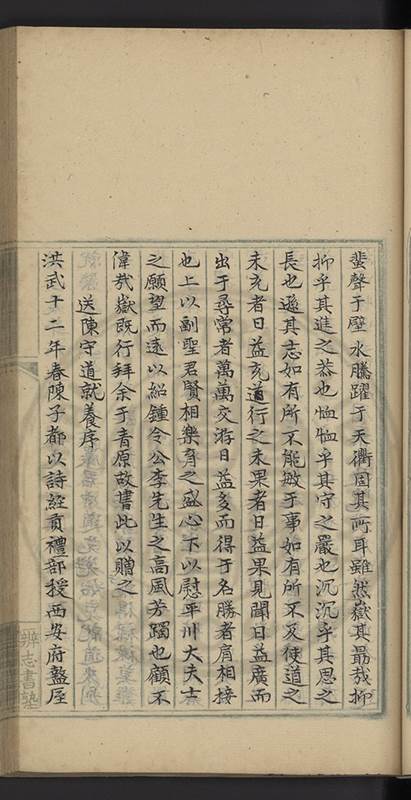 蜚聲于壁水騰躍于天衢固其所耳雖然嶽其勗哉抑
抑乎其進之恭也恤恤乎其守之嚴也沉沉乎其思之
長也遜其志如有所不能敏于事如有所不及使道之
未充者日益充道行之未果者日益果見聞日益廣而
出于尋常者萬萬交游日益多而得于名勝者肩相接
也上以副聖君賢相樂育之盛心下以慰平川大夫士
之願望而遠以紹鍾令公李先生之高風芳躅也顧不
偉哉嶽既行拜余于青原故書此以贈之
送陳守道就養序
洪武十二年春陳子都以詩經貢禮部授西安府盩厔
辨志書塾